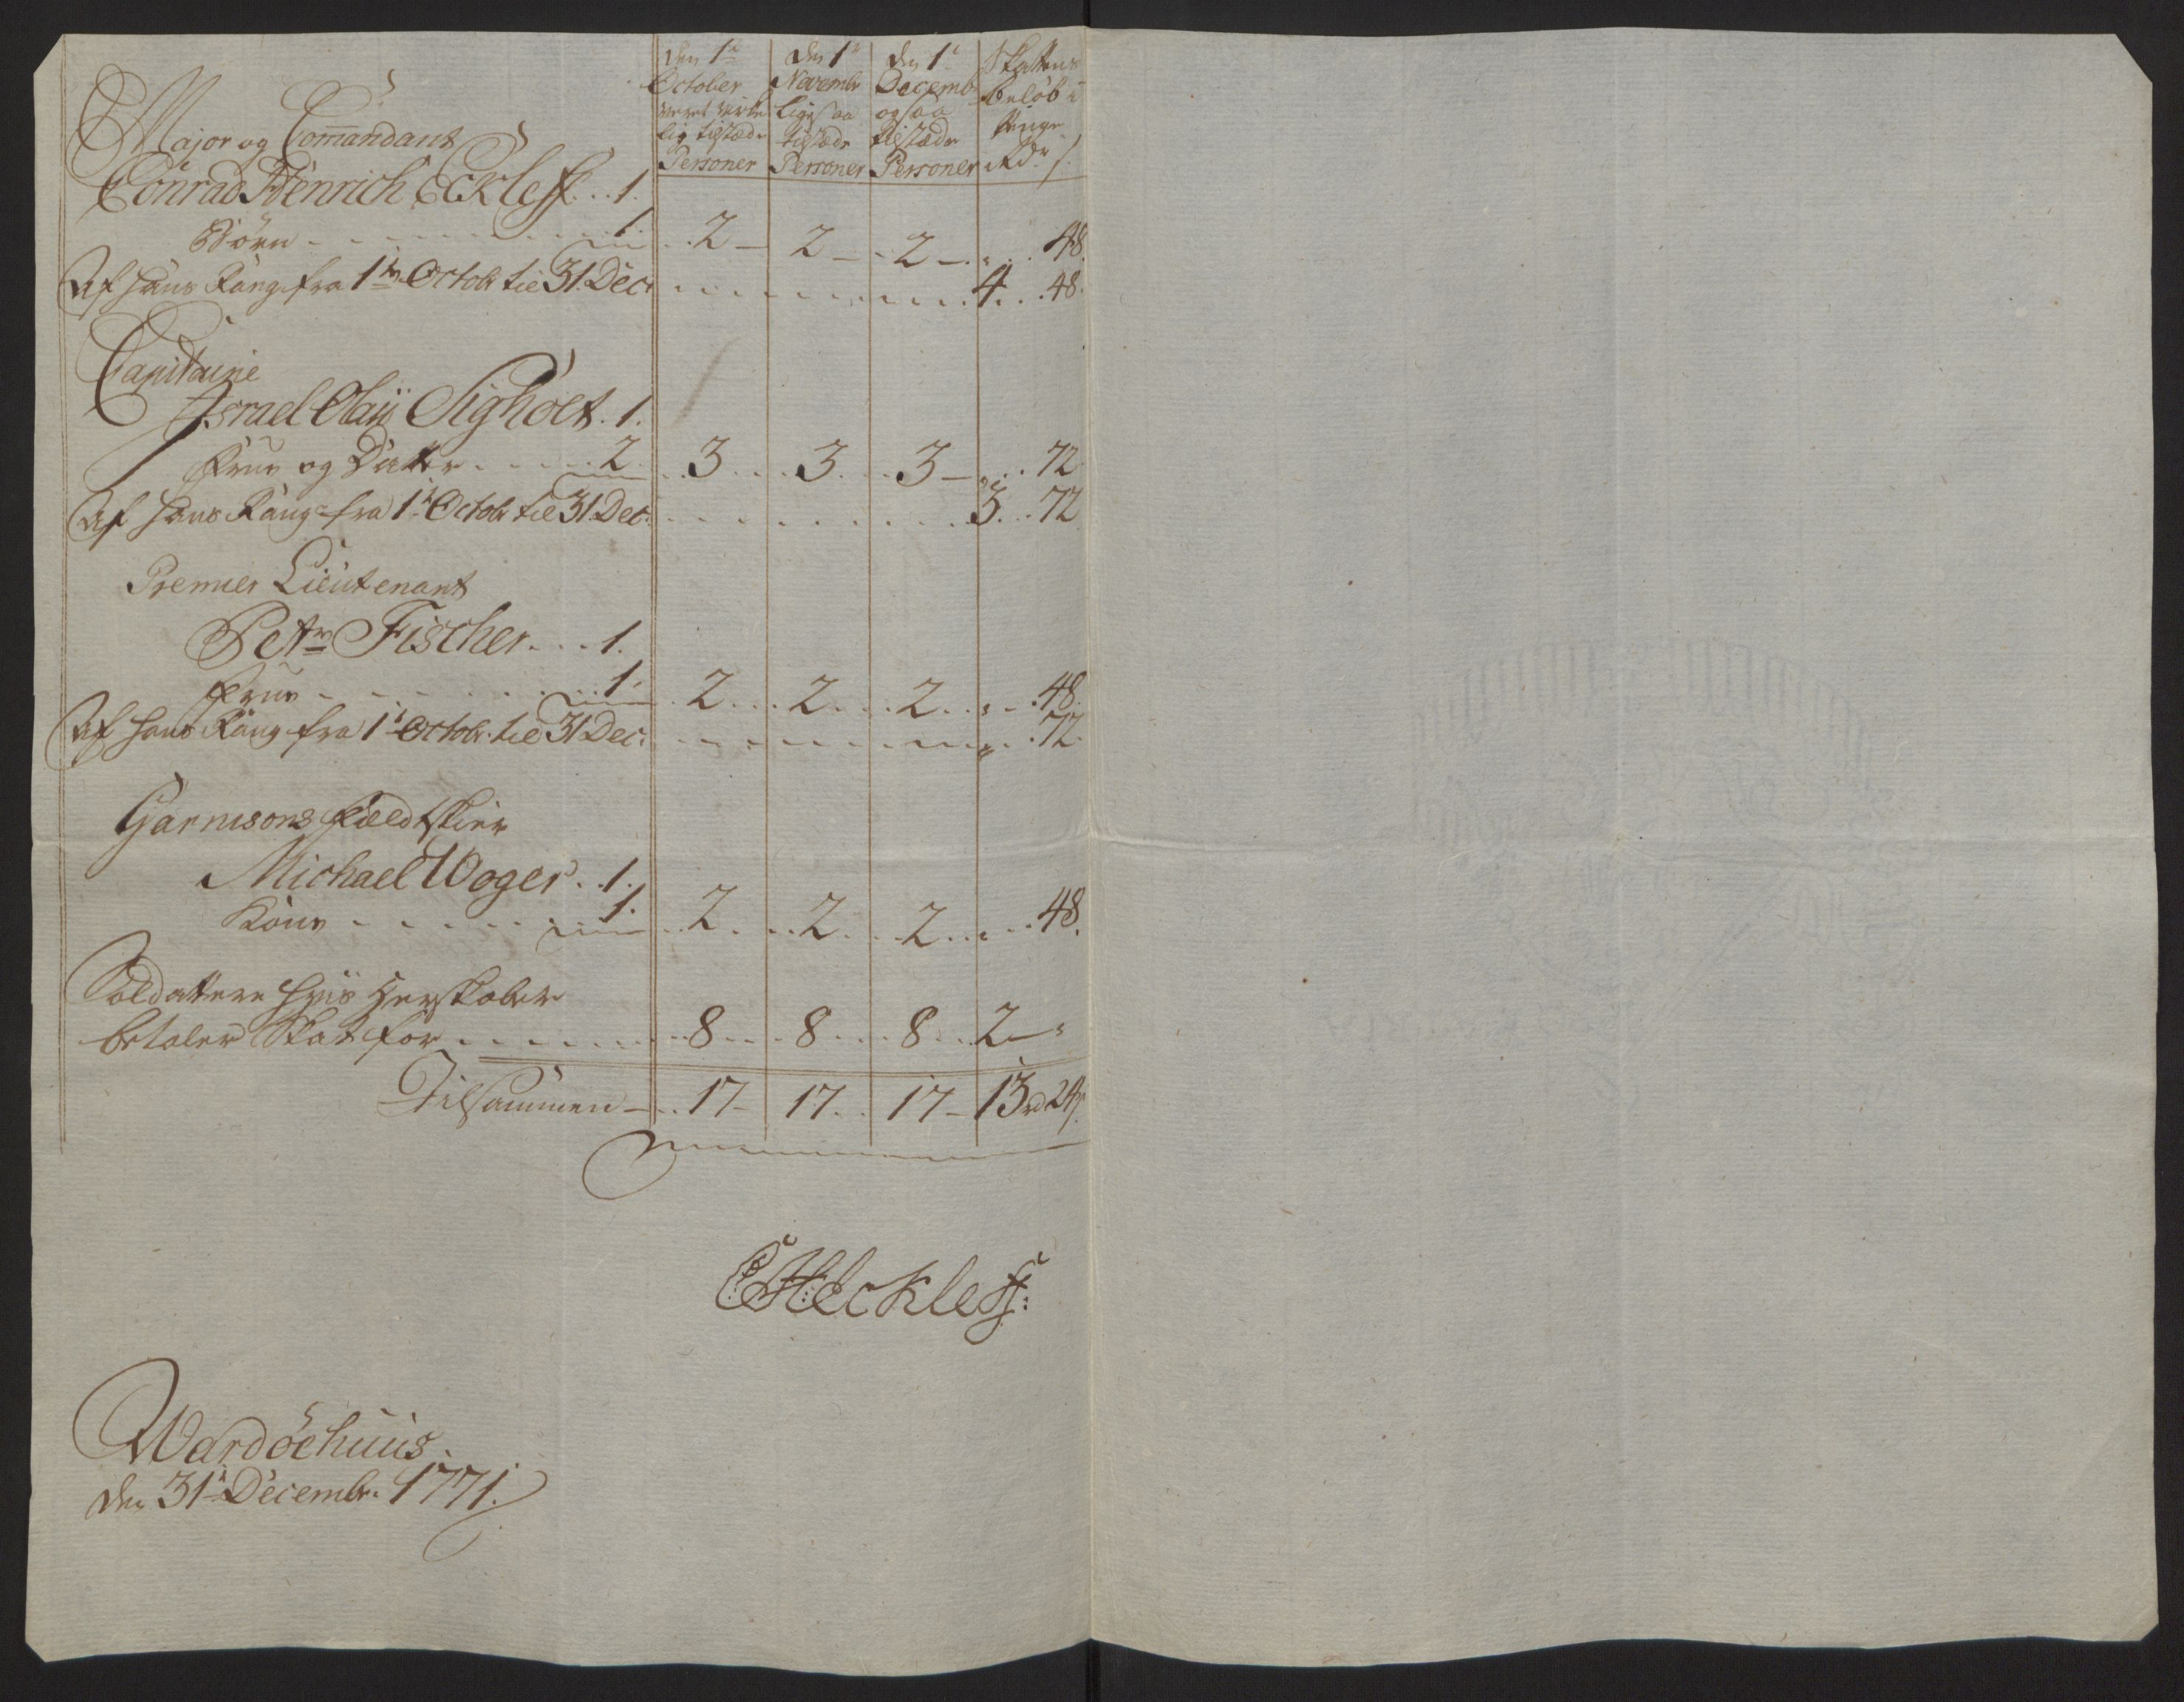 den 1te October været virke lig tilstæde Personer
den 1te Novembr ligesaa tilstæde Personer
den 1te Decemb ogsaa tilstæde Personer
Skattens beløb i Penge Rdr s.
Major og Commandant
Conrad Henrich Eckleff. . . 1.
Börn - - - 1. 2 - 2 - 2 - „ . 48.
Af hans Rang fra 1te Octobr til 31. Decr . . . 4. . 48.
Capitaine
Israel Olaij Sigholt. 1.
Frue og Datter - - - 2. 3. . 3. . 3 - „ . 72
Af hans Rang fra 1te Octobr til 31. Dec: . . . 3. . 72
Premier Lieutenant
Petr Fischer. . . 1.
Frue - - - 1. 2. . 2. . 2. . „ - . 48.
Af hans Rang fra 1te Octobr. til 31. Dec: - - - „ . 72.
Garnisons Feldtskier
Michael Woger. . 1.
Kone - - - 1. 2. . 2. . 2. . „ . . 48.
Soldattene hvis Herskaber
betaler Skat for - - - 8. . 8. . 8. . 2 - „
Tilsammen - . 17 - 17. . 17 - 13 rd 24 s.
CHEckleff:
Wardöehuus.
den 31te Decembr. 1771.